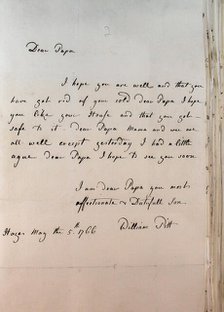 Dear Papa
I hope you are well and that you
have got rid of your cold dear Papa I hope
you like your House and that you got
safe to it dear Papa Mama and we are
all well except yesterday I had a little
ague dear Papa I hope to see you soon
I am dear Papa your most
affectionate & Dutifull Son
Hayes May the 5th 1766 William Pitt